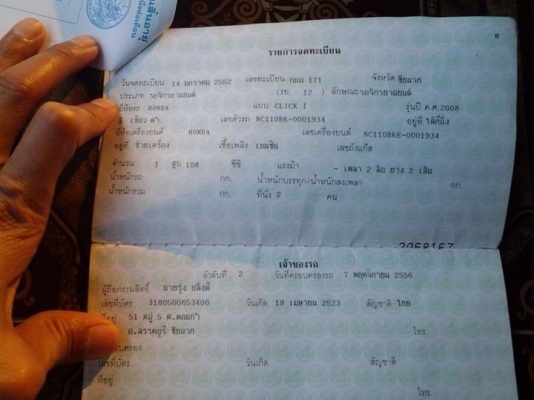 6
รายการจดทะเบียน
วันจดทะเบียน 14 มกราคม 2552 เลขทะเบียน กยม 171 จังหวัด ชัยนาท
ประเภท รถจักรยานยนต์ (รย. 12 ) ลักษณะ รถจักรยานยนต์
ยี่ห้อรถ HONDA แบบ CLICK I รุ่นปี ค.ศ. 2008
สี เขียว ดำ เลขตัวรถ NC110BK-0001934 อยู่ที่
ยี่ห้อเครื่องยนต์ HONDA เลขเครื่องยนต์ NC110BKE-0001934
อยู่ที่ เชื้อเพลิง เบนซิน เลขถังแก๊ส
จำนวน 1 สูบ 108 ซีซี แรงม้า - เพลา 2 ล้อ ยาง 2 เส้น
น้ำหนักรถ กก. น้ำหนักบรรทุก/น้ำหนักลงเพลา กก.
น้ำหนักรวม กก. ที่นั่ง 2 คน
เจ้าของรถ
ลำดับที่ 2 วันที่ครอบครองรถ 7 พฤศจิกายน 2556
ผู้ถือกรรมสิทธิ์ นายรุ่ง
เลขที่บัตร 3180500653406 วันเกิด 19 เมษายน 2523 สัญชาติ ไทย
ที่อยู่ 51 หมู่ 5
อ.สรรคบุรี ชัยนาท โทร.
เลขที่บัตร วันเกิด สัญชาติ
ที่อยู่
โทร.